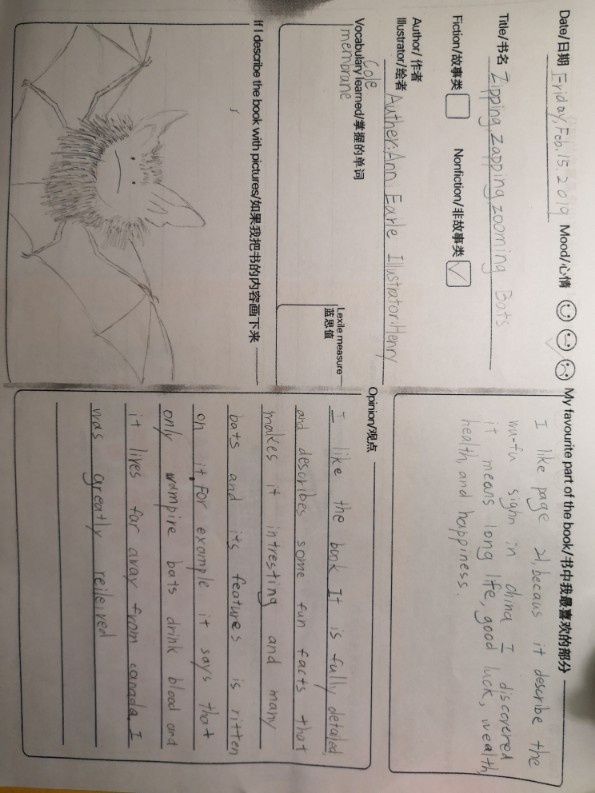 Date/日期 Friday, Feb. 15 2019 Mood/心情
Title/书名 Zipping zapping zooming Bats
Fiction/故事类 Nonfiction/非故事类
Author/作者
Illustrator/绘者 Auther: Ann Earle Illustrator: Henry
Cole
Vocabulary learned/掌握的单词
membrane
Lexile measure
蓝思值
If I describe the book with pictures/如果我把书的内容画下来
My favourite part of the book/书中我最喜欢的部分
I like page 21, becaus it describe the
wu-fu sighn in china I discovered
it means long life, good luck, wealth,
health, and happiness.
Opinion/观点
I like the book It is fully detailed
and describes some fun facts that
makes it intresting and many
bats and its features is ritten
on it, For example it says that
only vampire bats drink blood and
it lives far away from canada I
was greatly reileived